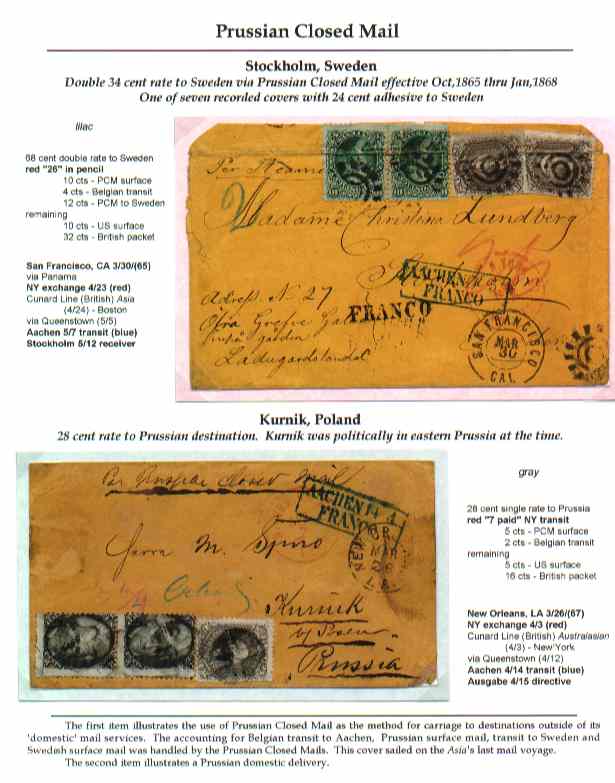 Prussian Closed Mail
Stockholm, Sweden
Double 34 cent rate to Sweden via Prussian Closed Mail effective Oct,1865 thru Jan,1868
One of seven recorded covers with 24 cent adhesive to Sweden
lilac
68 cent double rate to Sweden
red "26" in pencil
10 cts - PCM surface
4 cts - Belgian transit
12 cts - PCM to Sweden
remaining
10 cts - US surface
32 cts - British packet
San Francisco, CA 3/30/(65)
via Panama
NY exchange 4/23 (red)
Cunard Line (British) Asia
(4/24) - Boston
via Queenstown (5/5)
Aachen 5/7 transit (blue)
Stockholm 5/12 receiver
Per Steamer
Madame Christina Lundberg
Stockholm
AACHEN
FRANCO
FRANCO
Adress. N. 27
Ladugardslandet
SAN FRANCISCO
MAR
30
CAL.
Kurnik, Poland
28 cent rate to Prussian destination. Kurnik was politically in eastern Prussia at the time.
Per Prussian Closed Mail
AACHEN 14 4
FRANCO
Herrn M. Spiro
Kurnik
by Posen
Prussia
gray
28 cent single rate to Prussia
red "7 paid" NY transit
5 cts - PCM surface
2 cts - Belgian transit
remaining
5 cts - US surface
16 cts - British packet
New Orleans, LA 3/26/(67)
NY exchange 4/3 (red)
Cunard Line (British) Australasian
(4/3) - New York
via Queenstown (4/12)
Aachen 4/14 transit (blue)
Ausgabe 4/15 directive
The first item illustrates the use of Prussian Closed Mail as the method for carriage to destinations outside of its
'domestic' mail services. The accounting for Belgian transit to Aachen, Prussian surface mail, transit to Sweden and
Swedish surface mail was handled by the Prussian Closed Mails. This cover sailed on the Asia's last mail voyage.
The second item illustrates a Prussian domestic delivery.